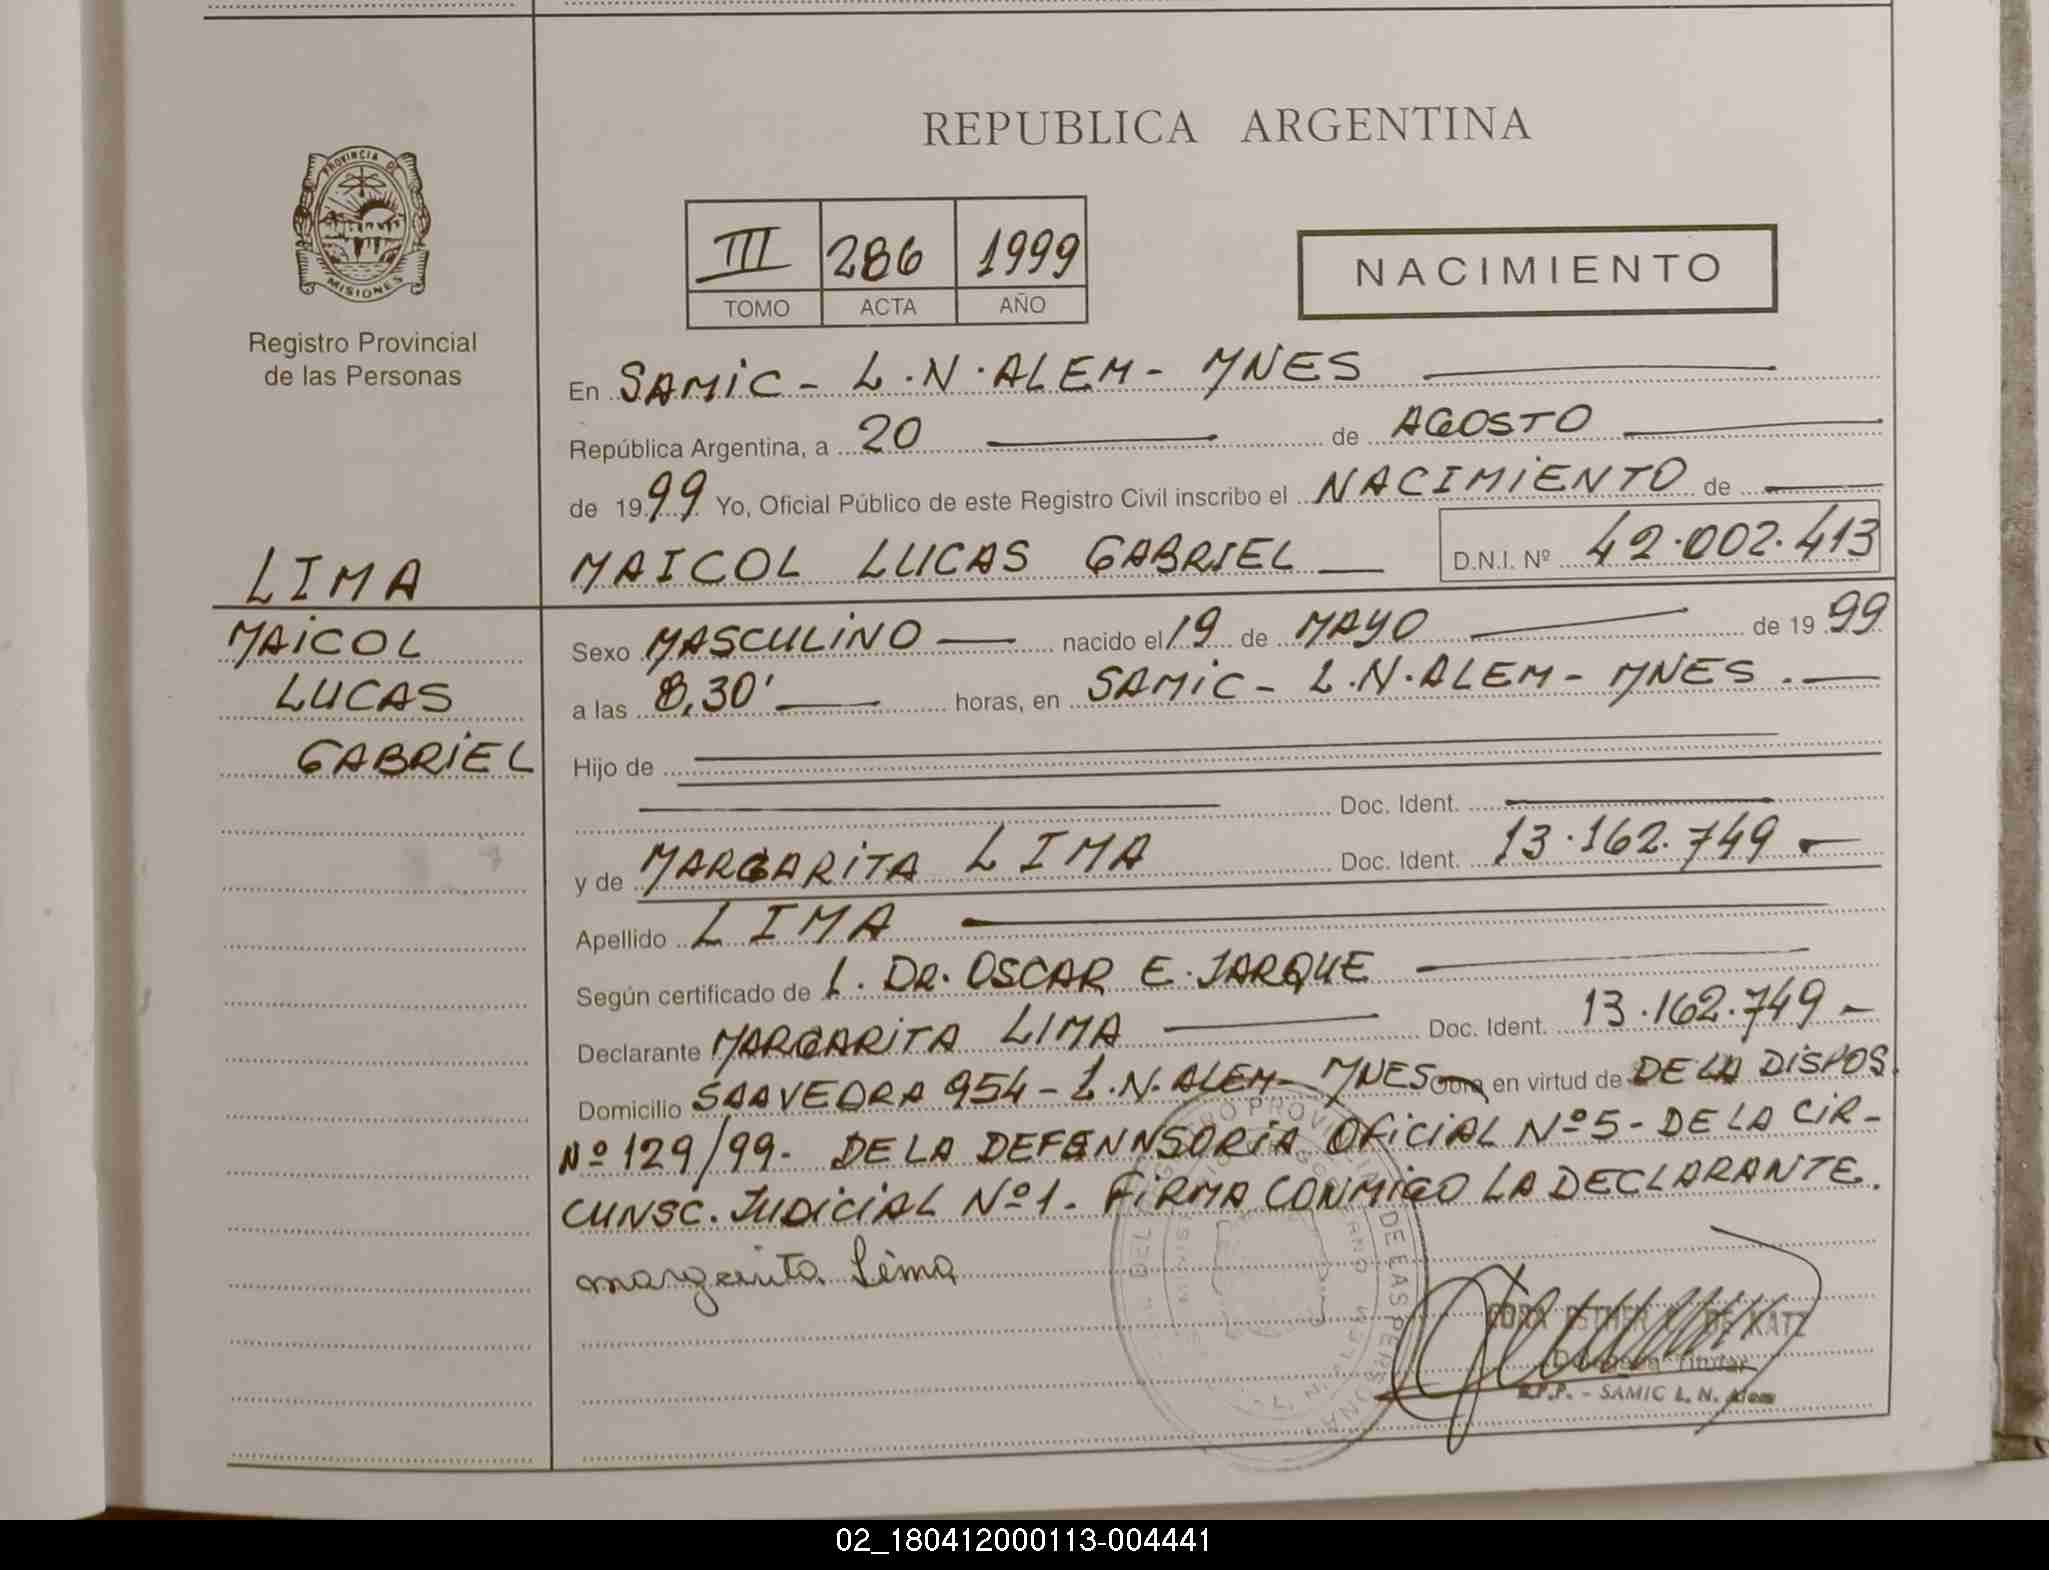 REPUBLICA ARGENTINA
PROVINCIA DE
MISIONES
Registro Provincial
de las Personas
III 286 1999
TOMO ACTA AÑO
NACIMIENTO
En SAMIC - L.N.ALEM - MNES
República Argentina, a 20 de AGOSTO
de 1999 Yo, Oficial Público de este Registro Civil inscribo el NACIMIENTO de
MAICOL LUCAS GABRIEL D.N.I. Nº 42.002.413
LIMA
MAICOL
LUCAS
GABRIEL
Sexo MASCULINO nacido el 19 de MAYO de 1999
a las 8,30' horas, en SAMIC - L.N.ALEM - MNES.
Hijo de
Doc. Ident.
y de MARGARITA LIMA Doc. Ident. 13.162.749
Apellido LIMA
Según certificado de L. DR. OSCAR E. JARQUE
Declarante MARGARITA LIMA Doc. Ident. 13.162.749 -
Domicilio SAAVEDRA 954 - L.N.ALEM - MNES Obra en virtud de DE LA DISPOS.
Nº 129/99. DE LA DEFENNSORIA OFICIAL Nº 5 - DE LA CIR-
CUNSC. JUDICIAL Nº 1. FIRMA CONMIGO LA DECLARANTE.
margarita Lima
DE LAS PERSONAS
ESTHER DE KATZ
Titular
R.P.P. - SAMIC L. N. Alem
02_180412000113-004441